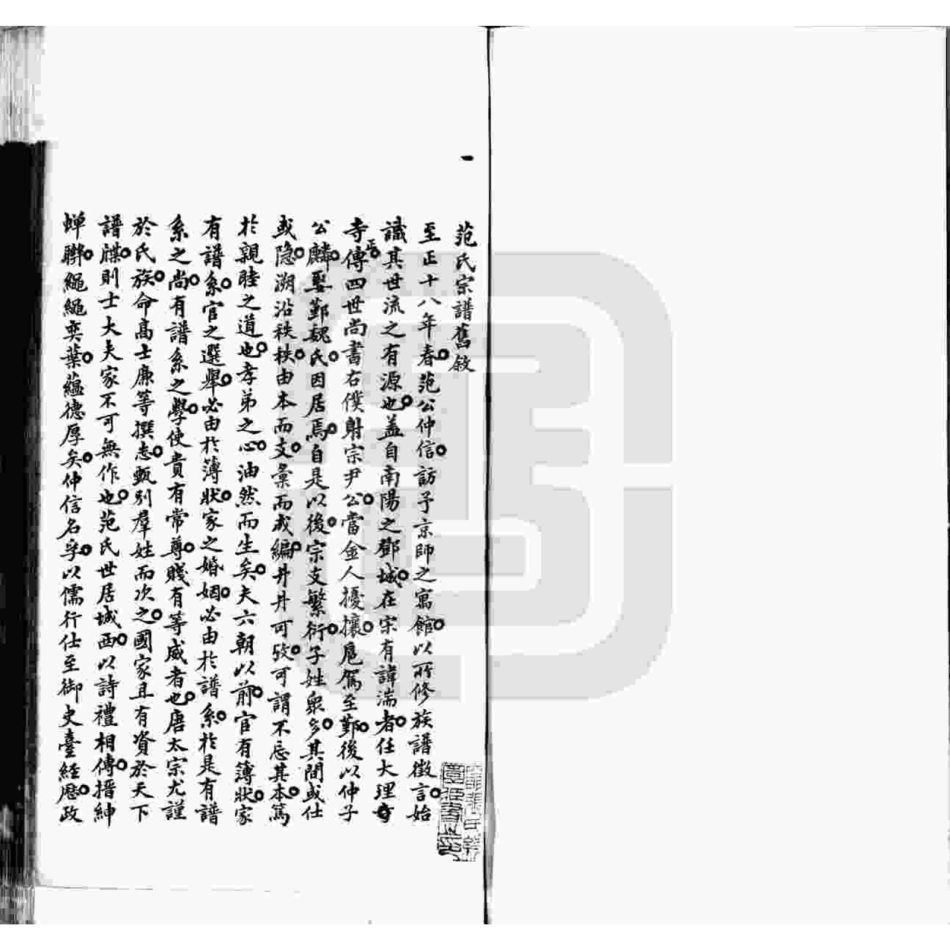 范氏宗譜舊敘
至正十八年春范公仲信訪予京師之寓館以所修族譜徵言始
識其世流之有源也蓋自南陽之鄧城在宋有諱湍者任大理
寺正傳四世尚書右僕射宗尹公當金人擾攘扈駕至鄞後以仲子
公麟娶鄞魏氏因居焉自是以後宗支繁衍子姓衆多其間或仕
或隐溯沿秩秩由本而支彙而成編井井可攷可謂不忘其本篤
於親睦之道也孝弟之心油然而生矣夫六朝以前官有簿狀家
有譜系官之選舉必由於簿狀家之婚姻必由於譜系於是有譜
系之尚有譜系之學使貴有常尊賤有等威者也唐太宗尤謹
於氏族命高士廉等撰志甄別羣姓而次之國家且有資於天下
譜牒則士大夫家不可無作也范氏世居城西以詩禮相傳搢紳
蟬聯繩繩奕葉蘊德厚矣仲信名孚以儒行仕至御史臺經歷政